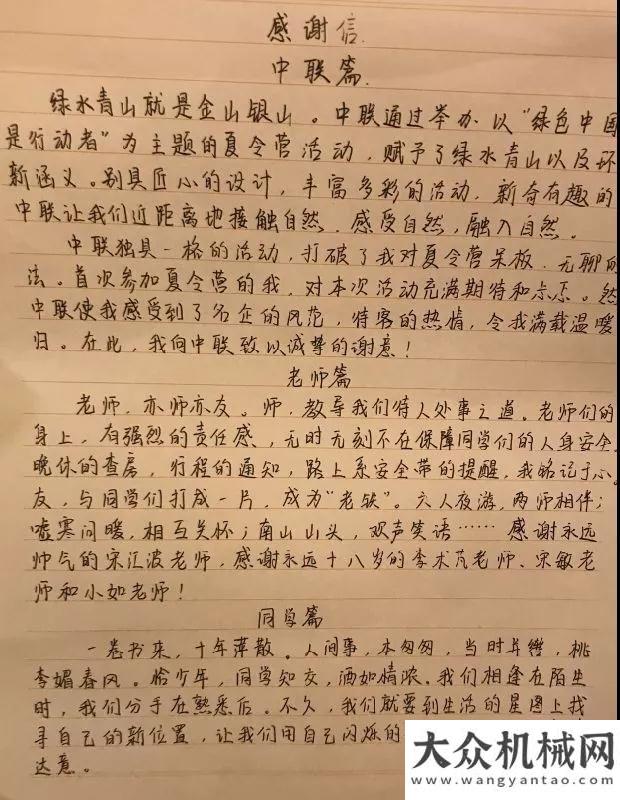 感谢信.
中联篇.
绿水青山就是金山银山。中联通过举办以“绿色中国
是行动者”为主题的夏令营活动,赋予了绿水青山以及环
新涵义。别具匠心的设计,丰富多彩的活动,新奇有趣的
中联让我们近距离地接触自然、感受自然,融入自然。
中联独具一格的活动,打破了我对夏令营呆板、无聊的
法。首次参加夏令营的我,对本次活动充满期待和忐忑。然
中联使我感受到了名企的风范,待客的热情,令我满载温暖
归。在此,我向中联致以诚挚的谢意!
老师篇
老师,亦师亦友。师,教导我们待人处事之道。老师们的
身上,有强烈的责任感,无时无刻不在保障同学们的人身安全,
晚休的查房,行程的通知,路上系安全带的提醒,我铭记于心。
友,与同学们打成一片,成为“老铁”。六人夜游,两师相伴;
嘘寒问暖,相互关怀;南山山头,欢声笑语……感谢永远
帅气的宋汇波老师,感谢永远十八岁的李木芃老师、宋敏老
师和小如老师!
同学篇
一卷书来,十年萍散。人间事,本匆匆,当时并辔,桃
李媚春风。恰少年,同学知交,洒如情浓。我们相逢在陌生
时,我们分手在熟悉后。不久,我们就要到生活的星图上找
寻自己的新位置,让我们用自己闪烁的
达意。
大众机械网
www.wangyantao.com